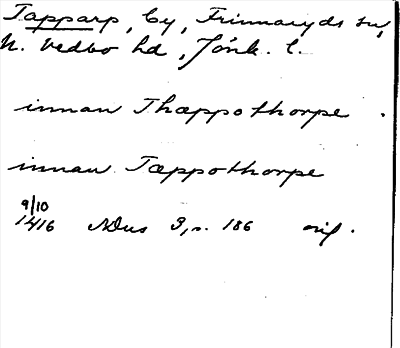 Tapparp, by, Frinnaryds sn,
N. Vedbo hd, Jönk. l.
innan Thæppothorpe.
innan Tæppothorpe
9/10
1416 NDns 3, s. 186 orig.